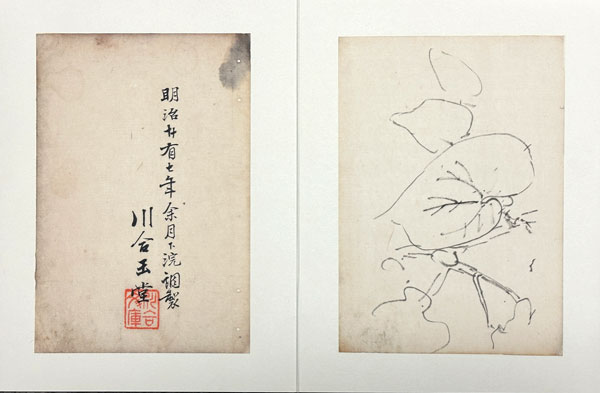 明治廿有七年余月下浣調製
川合玉堂
川合
文庫